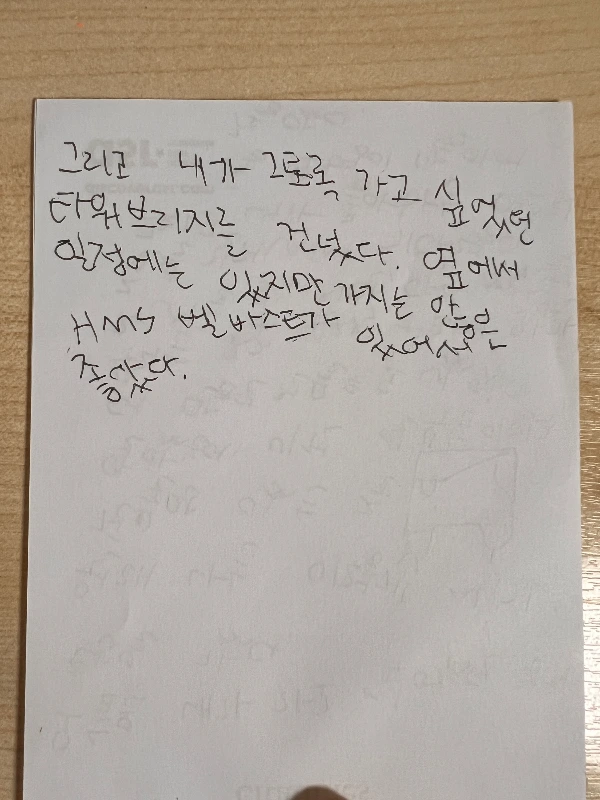 그리고 내가 그토록 가고 싶었던
타워브리지를 건넜다. 옆에서
일정에는 있지만 가지는 않은
HMS 벨바스트가 있어서
좋았다.